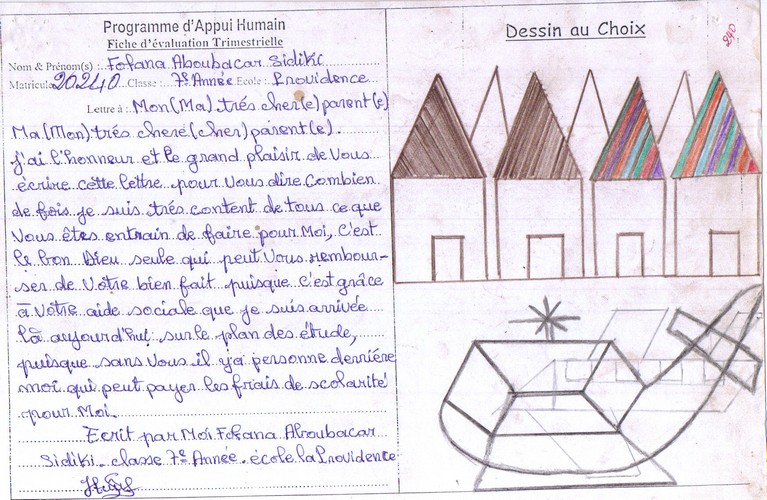 Programme d'Appui Humain
Fiche d'évaluation Trimestrielle
Nom & Prénom(s) : Fofana Aboubacar Sidiki
Matricule 20240 Classe : 7e Année Ecole : Providence
Lettre à : Mon(Ma) trés cher(e) parent(e)
Ma (Mon) trés chere (cher) parent(e).
j'ai l'honneur et le grand plaisir de Vous
écrire cette lettre pour Vous dire Combien
de fois je suis trés content de tous ce que
Vous êtes entrain de faire pour Moi, C'est
le bon Dieu seule qui peut Vous rembour-
ser de Votre bien fait puisque c'est grâce
à Votre aide sociale que je suis arrivée
là aujourd'hui sur le plan des étude,
puisque sans Vous il y'a personne derriére
moi qui peut payer les frais de scolarité
pour Moi.
Ecrit par Moi Fofana Aboubacar
Sidiki classe 7e Année école la Providence
Dessin au Choix
240